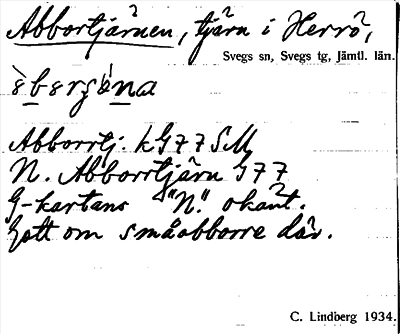 Abbortjärnen, tjärn i Herrö,
Svegs sn, Svegs tg, Jämtl. län.
Abborrtj: kG77SM,
N. Abborrtjärn G77
G-kartans "N." okänt.
Gott om småabborre där.
C. Lindberg 1934.